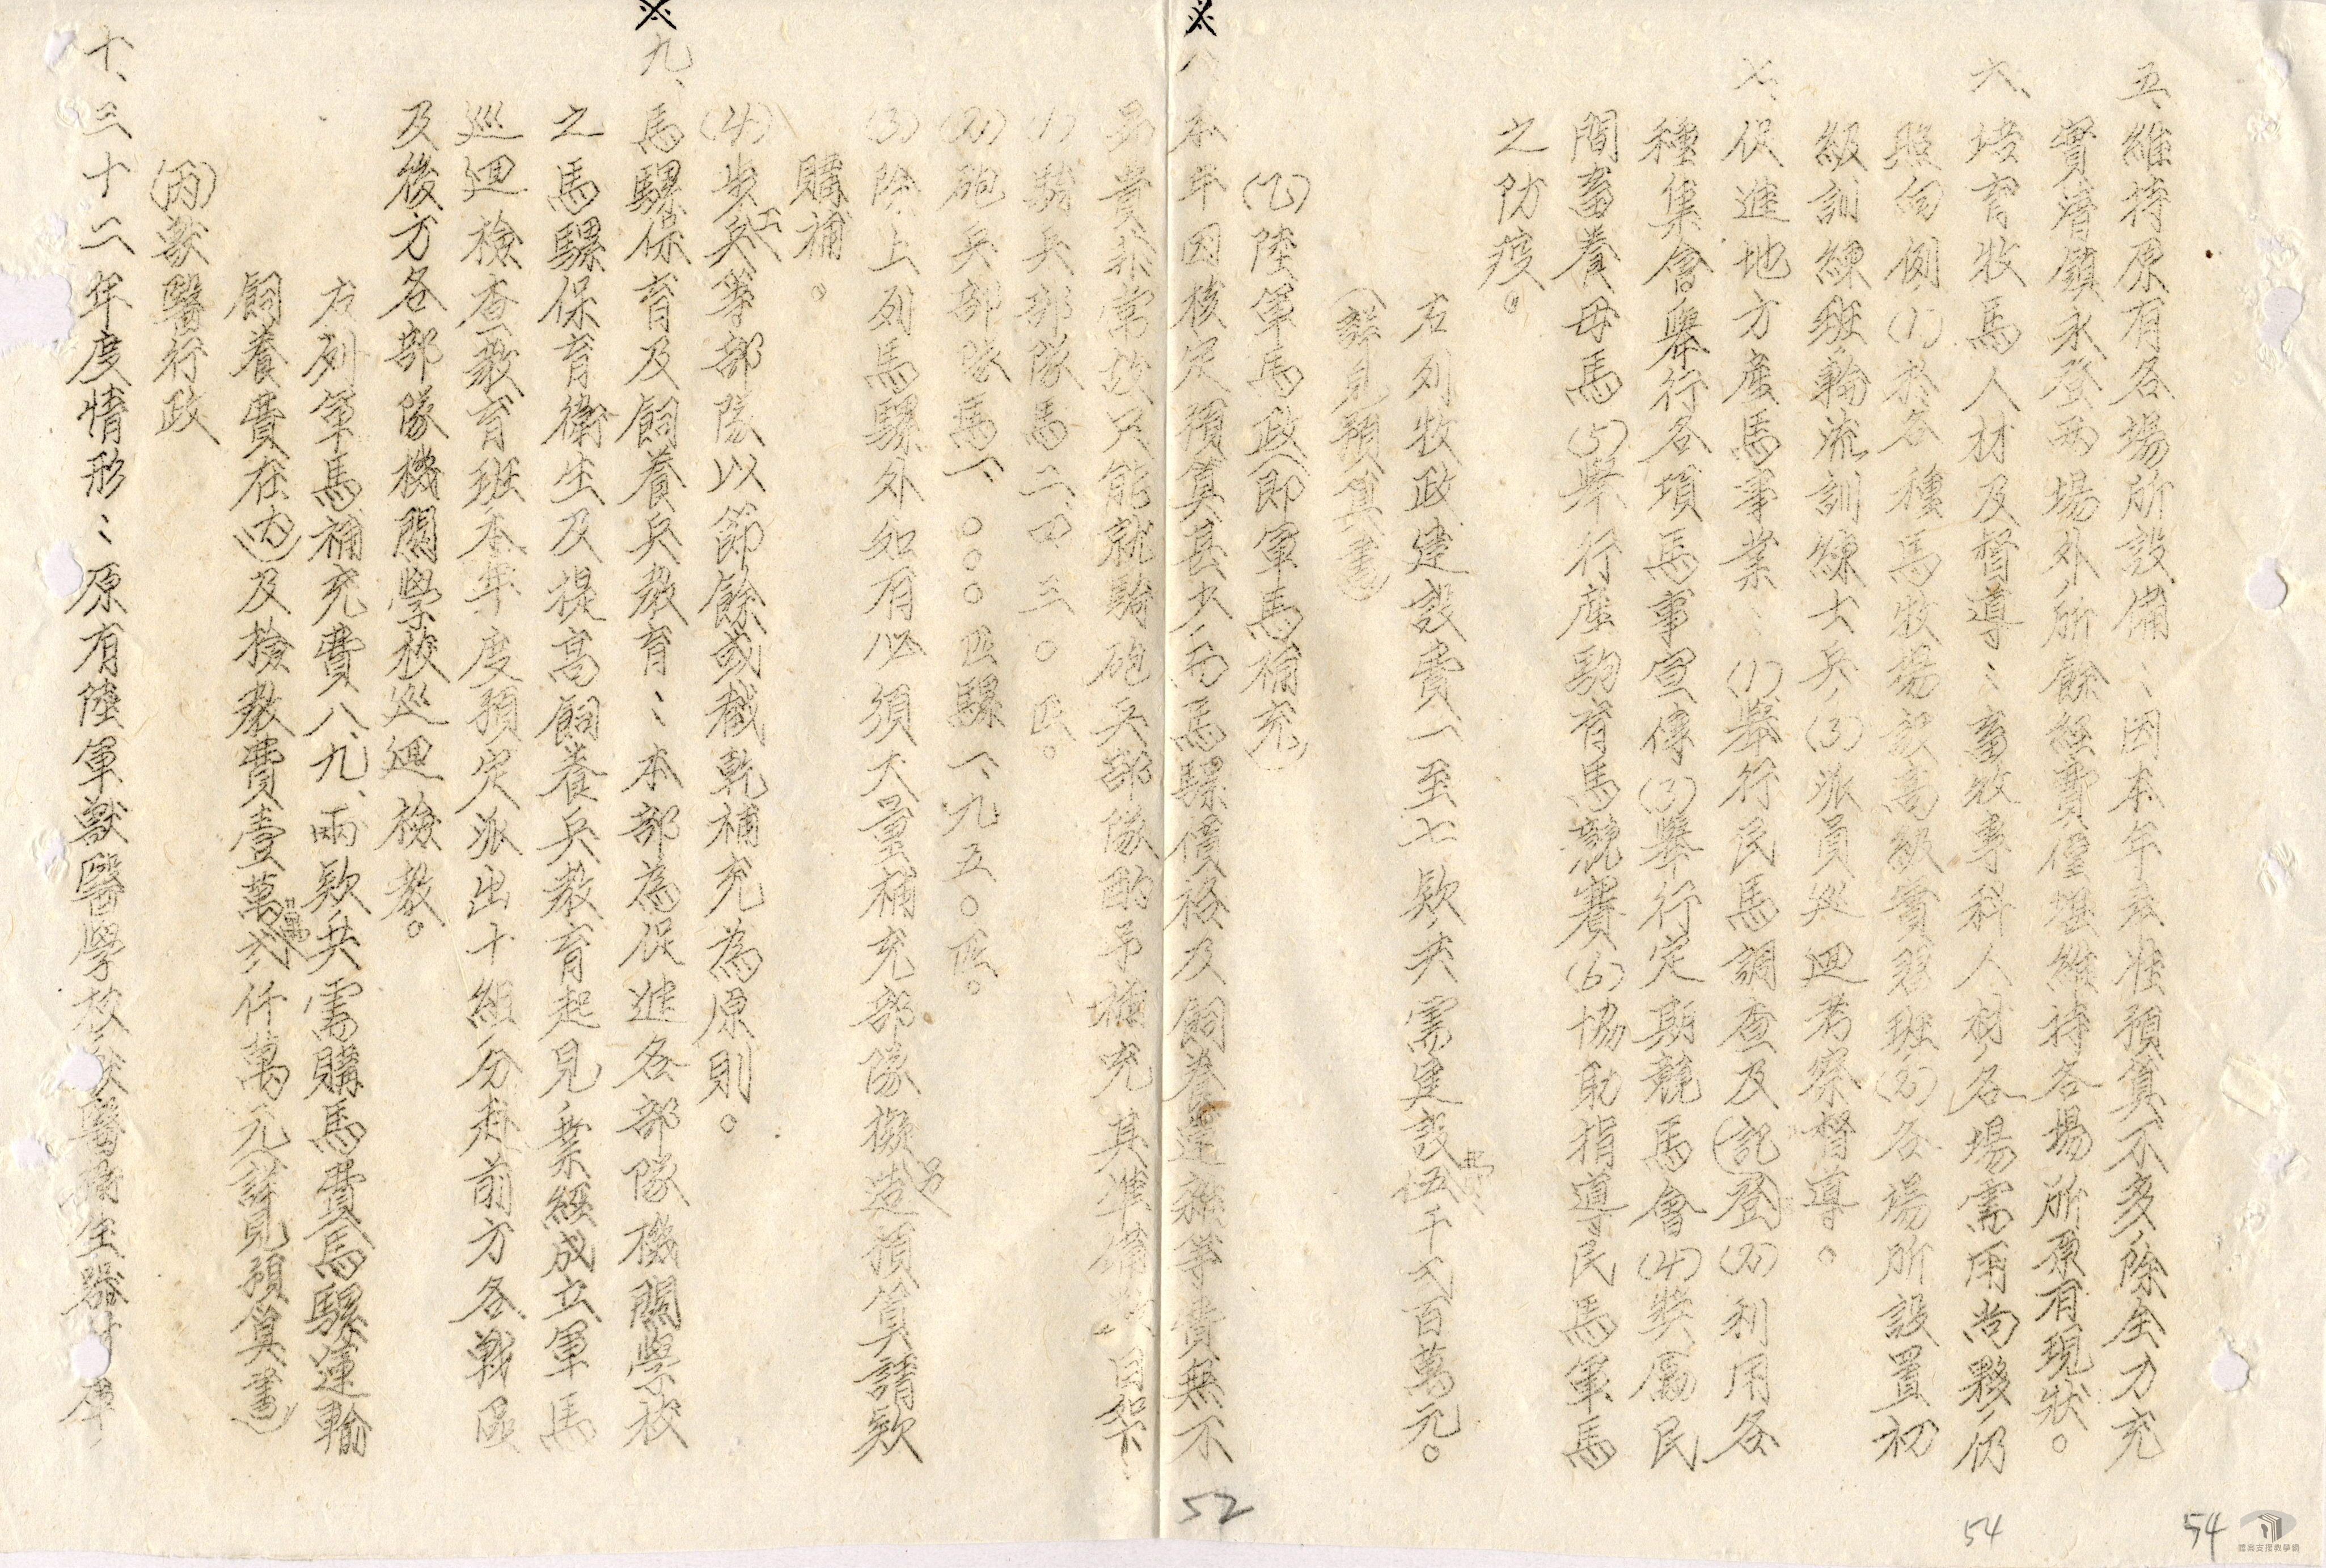 五、維持原有各場所設備：因本年度准預算不多、除全力充
實清鎮永登兩場外、所餘經費僅堪維持各場所原有現狀。
六、培育牧馬人材及督導：畜牧專科人材、各場需用尚夥、仍
照向例(1)於各種馬牧場設高級實習班(2)各場所設置初
級訓練班輪流訓練士兵(3)派員巡迴考察督導。
七、促進地方產馬事業：(1)舉行民馬調查及(記登)(2)利用各
種集會舉行各項馬事宣傳(3)舉行定期競馬會(4)獎勵民
間畜養母馬(5)舉行產駒育馬競賽(6)協助指導民馬軍馬
之防疫。
右列牧政建設費一至七款共需建設費伍千弍百萬元。
(詳見預算書)
(乙)陸軍馬政(即軍馬補充)
※八、本年因核定預算甚少、而馬騾價格及飼養運雜等費無不
昂貴非常故只能就騎砲兵部隊酌予補充其準備數目如下：
(1)騎兵部隊馬二、四三〇匹。
(2)砲兵部隊馬一、〇〇〇匹騾一、九五〇匹。
(3)除上列馬騾外如有必須大量補充部隊擬另造預算請款
購補。
(4)步兵工等部隊以節餘或截乾補充為原則。
※九、馬騾保育及飼養兵教育：本部為促進各部隊機關學校
之馬騾保育衛生及提高飼養兵教育起見、業經成立軍馬
巡迴檢查教育班本年度預定派出十組、分赴前方各戰區
及後方各部隊機關學校巡迴檢教。
右列軍馬補充費八、九、兩款共需購馬費馬騾運輸
飼養費在(內)及檢教費壹萬弍仟萬元(詳見預算書)
(丙)獸醫行政
十、三十二年度情形：原有陸軍獸醫學校獸醫衛生器材庫
52
54
54
檔案支援教學網